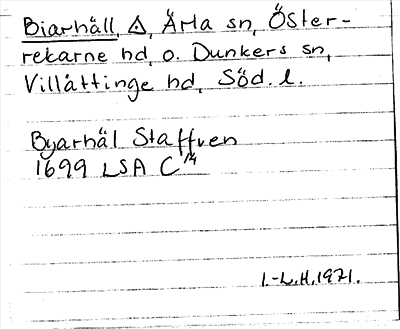 Biarhäll, ◬, Ärla sn, Öster-
rekarne hd, o. Dunkers sn,
Villåttinge hd, Söd. l.
Byarhäl Staffven
1699 LSA C 1/4
I.-L.H. 1971.